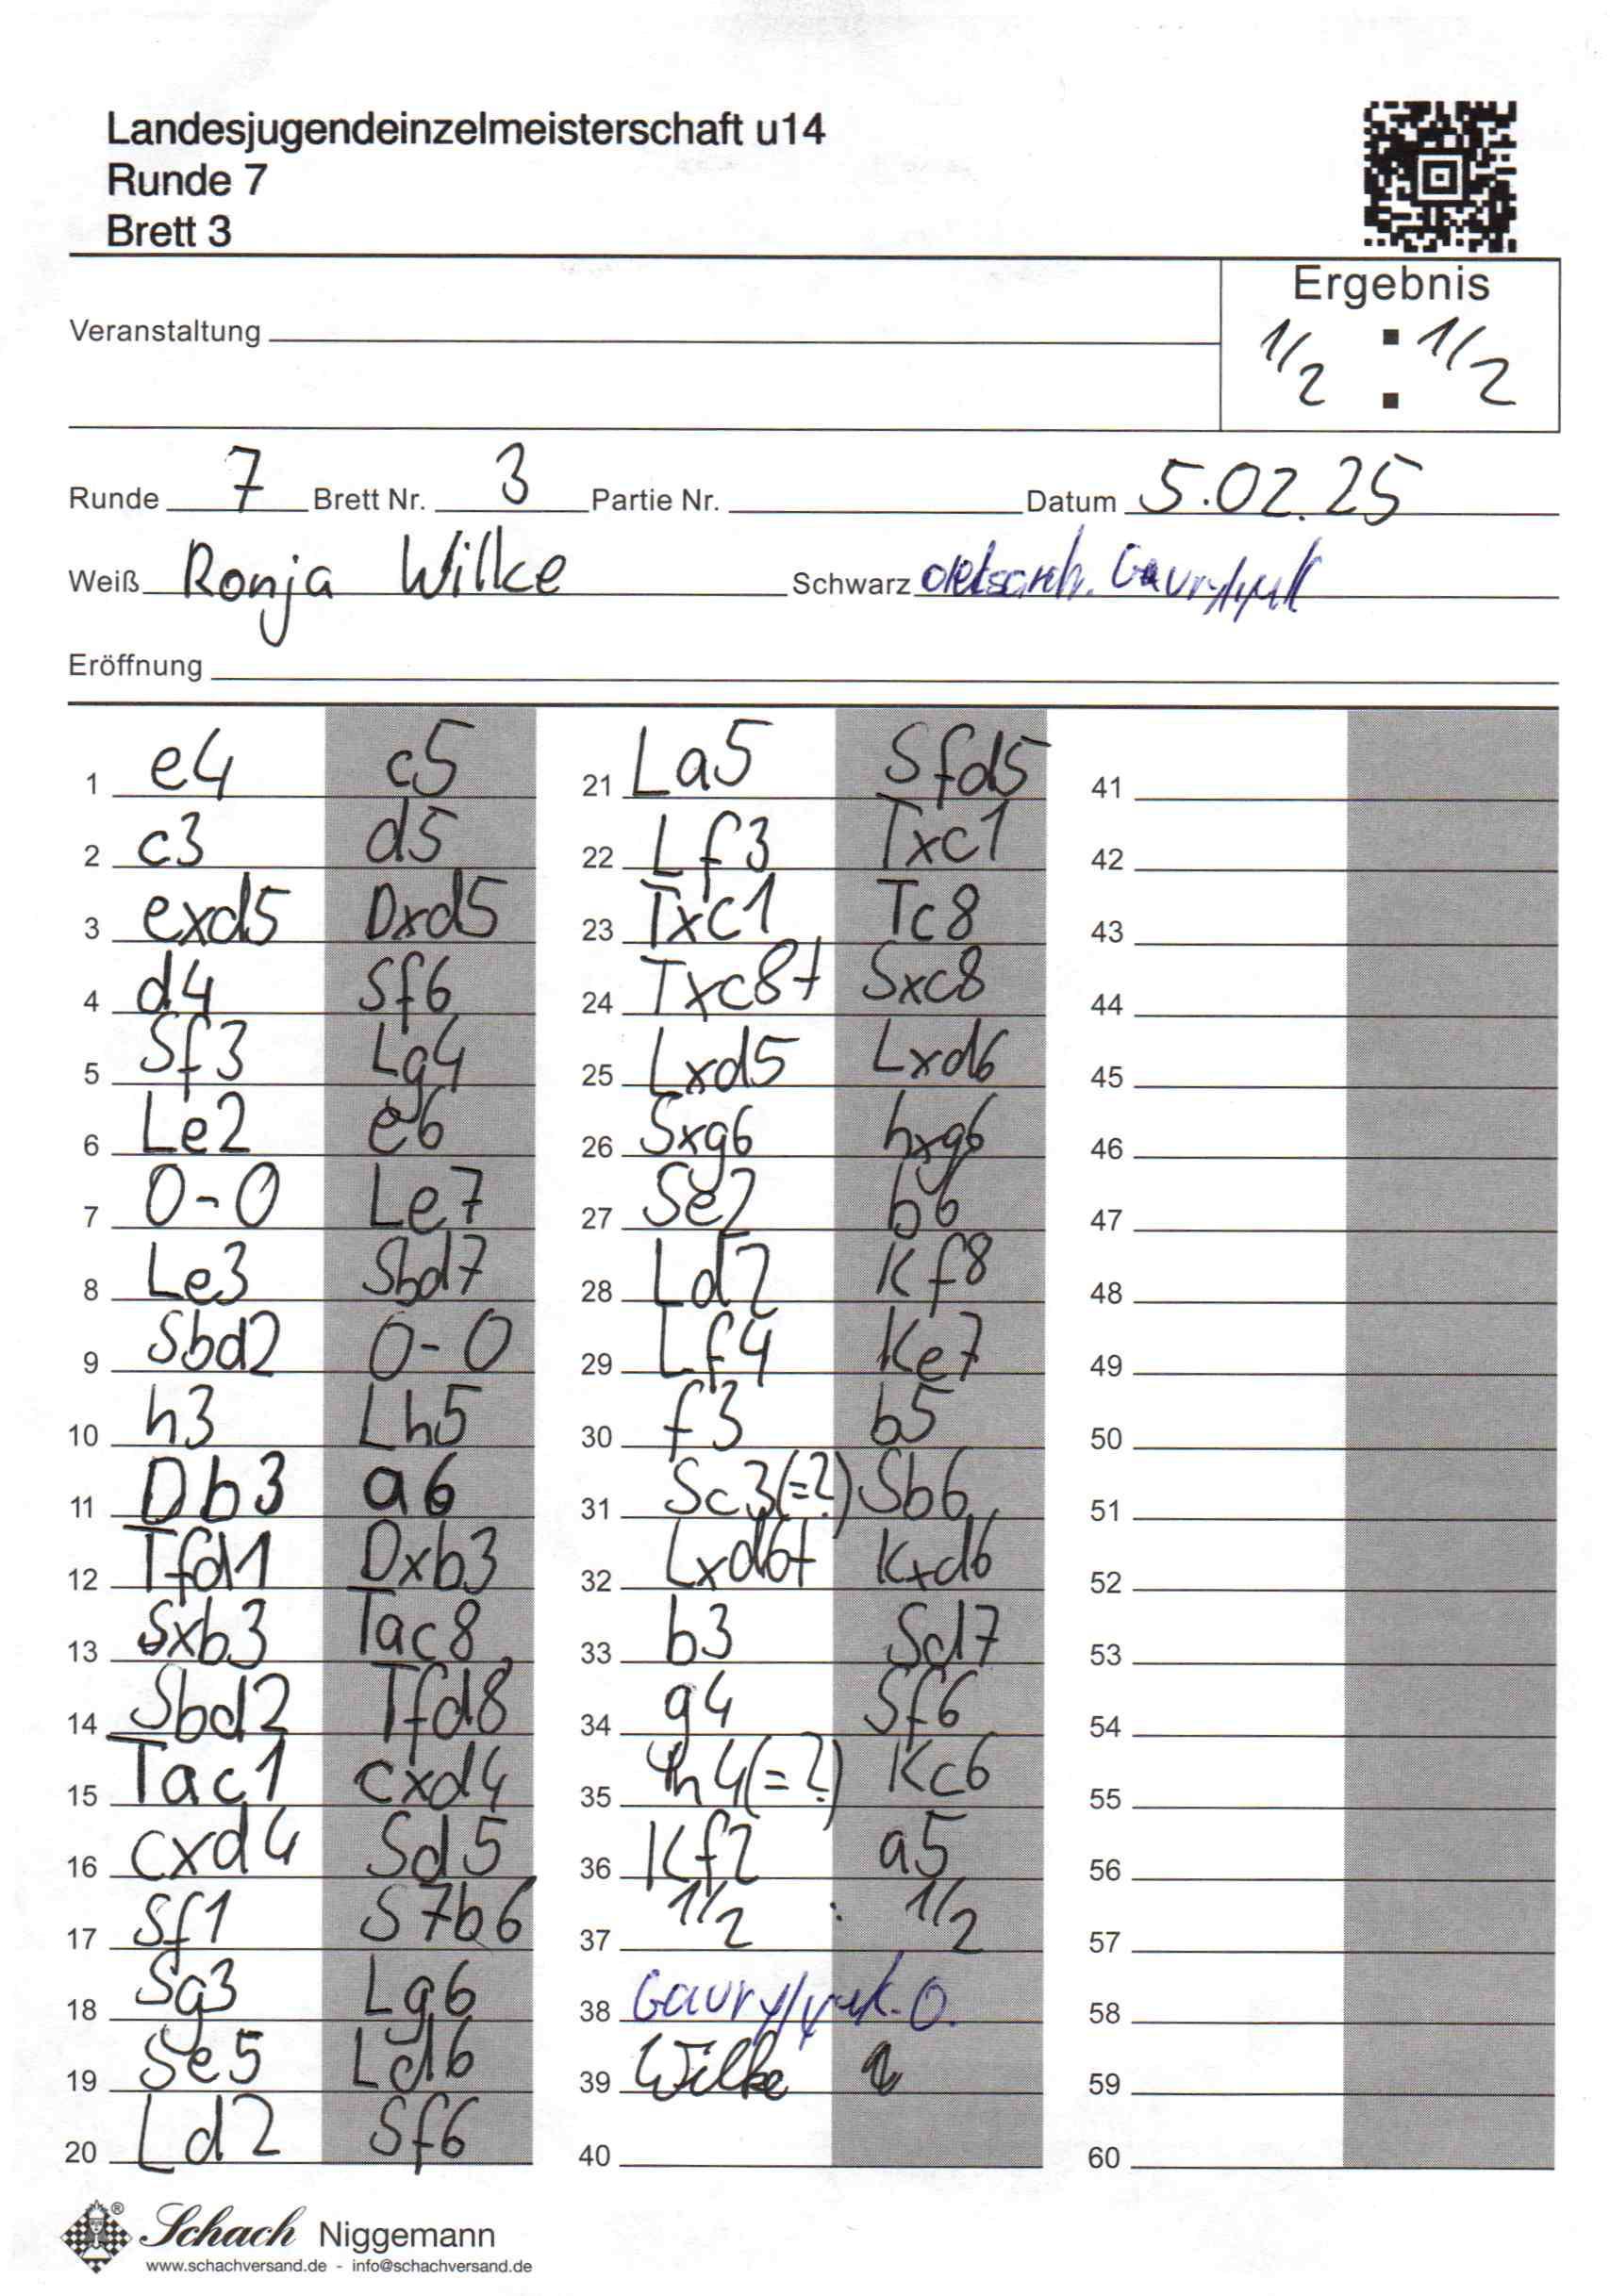 Landesjugendeinzelmeisterschaft u14
Runde 7
Brett 3
Ergebnis
1/2 : 1/2
Veranstaltung
Runde 7 Brett Nr. 3 Partie Nr. Datum 5.02.25
Weiß Ronja Wilke Schwarz
Eröffnung
1 e4 c5
2 c3 d5
3 exd5 Dxd5
4 d4 Sf6
5 Sf3 Lg4
6 Le2 e6
7 0-0 Le7
8 Le3 Sbd7
9 Sbd2 0-0
10 h3 Lh5
11 Db3 a6
12 Tfd1 Dxb3
13 Sxb3 Tac8
14 Sbd2 Tfd8
15 Tac1 cxd4
16 cxd4 Sd5
17 Sf1 S7b6
18 Sg3 Lg6
19 Se5 Ld6
20 Ld2 Sf6
21 La5 Sfd5
22 Lf3 Txc1
23 Txc1 Tc8
24 Txc8+ Sxc8
25 Lxd5 Lxd6
26 Sxg6 hxg6
27 Se2 b6
28 Ld2 Kf8
29 Lf4 Ke7
30 f3 b5
31 Sc3(=?) Sb6
32 Lxd6+ Kxd6
33 b3 Sd7
34 g4 Sf6
35 h4(=?) Kc6
36 Kf2 a5
37 1/2 : 1/2
38
39 Wilke
40
41
42
43
44
45
46
47
48
49
50
51
52
53
54
55
56
57
58
59
60
Schach Niggemann
www.schachversand.de - info@schachversand.de